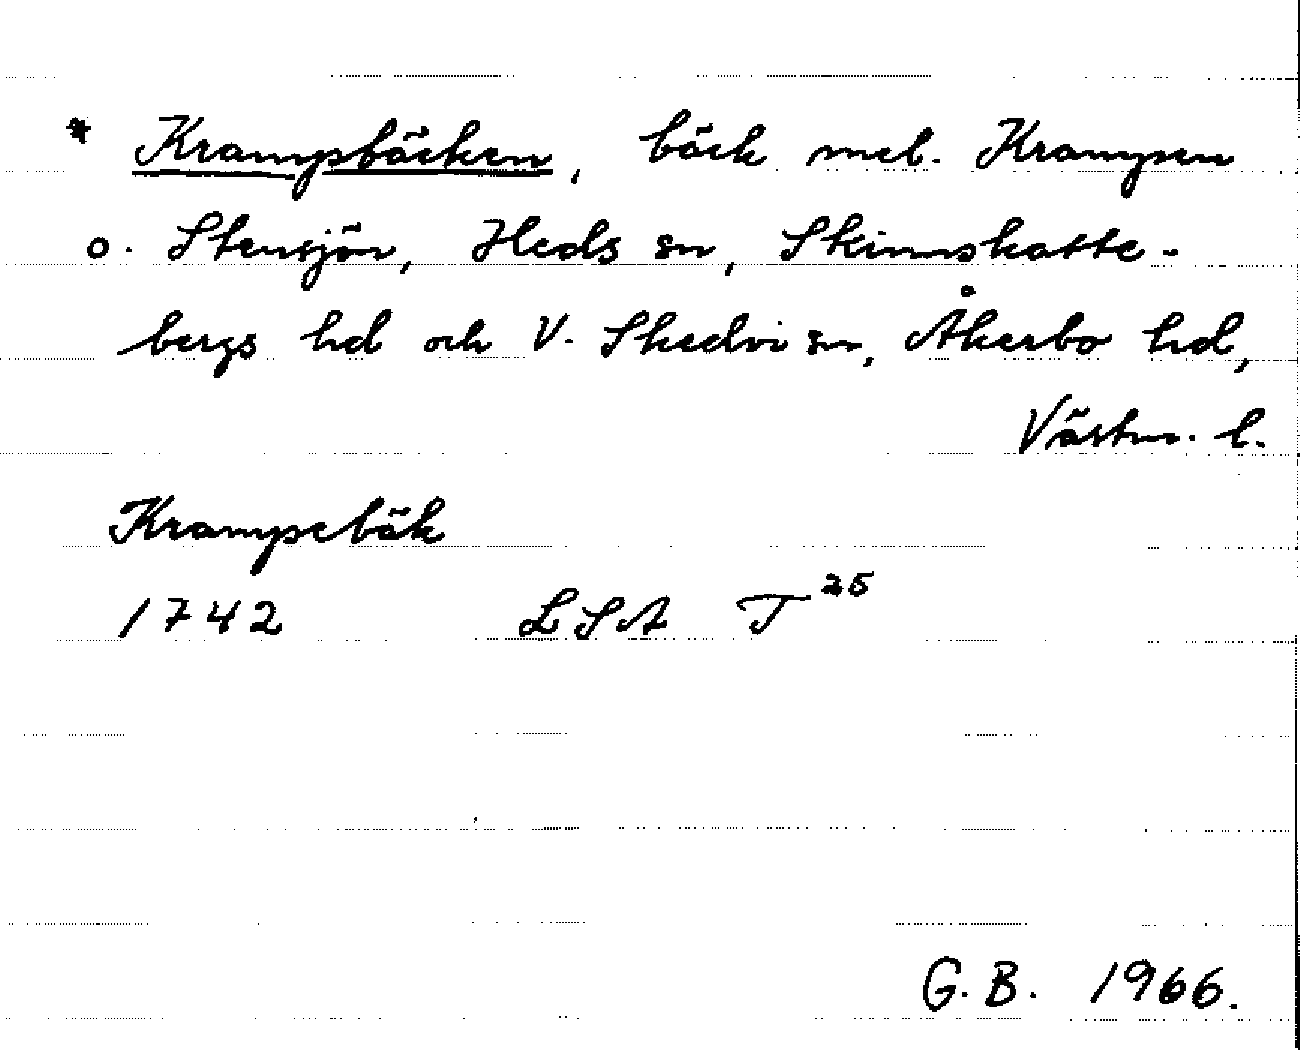 * Krampsbäcken, bäck mel. Krampen
o. Stensjön, Heds sn, Skinnskatte-
bergs hd och V. Skedvi sn, Åkerbo hd,
Västm. l.
Krampebäk
1742 LSA T 25
G. B. 1966.